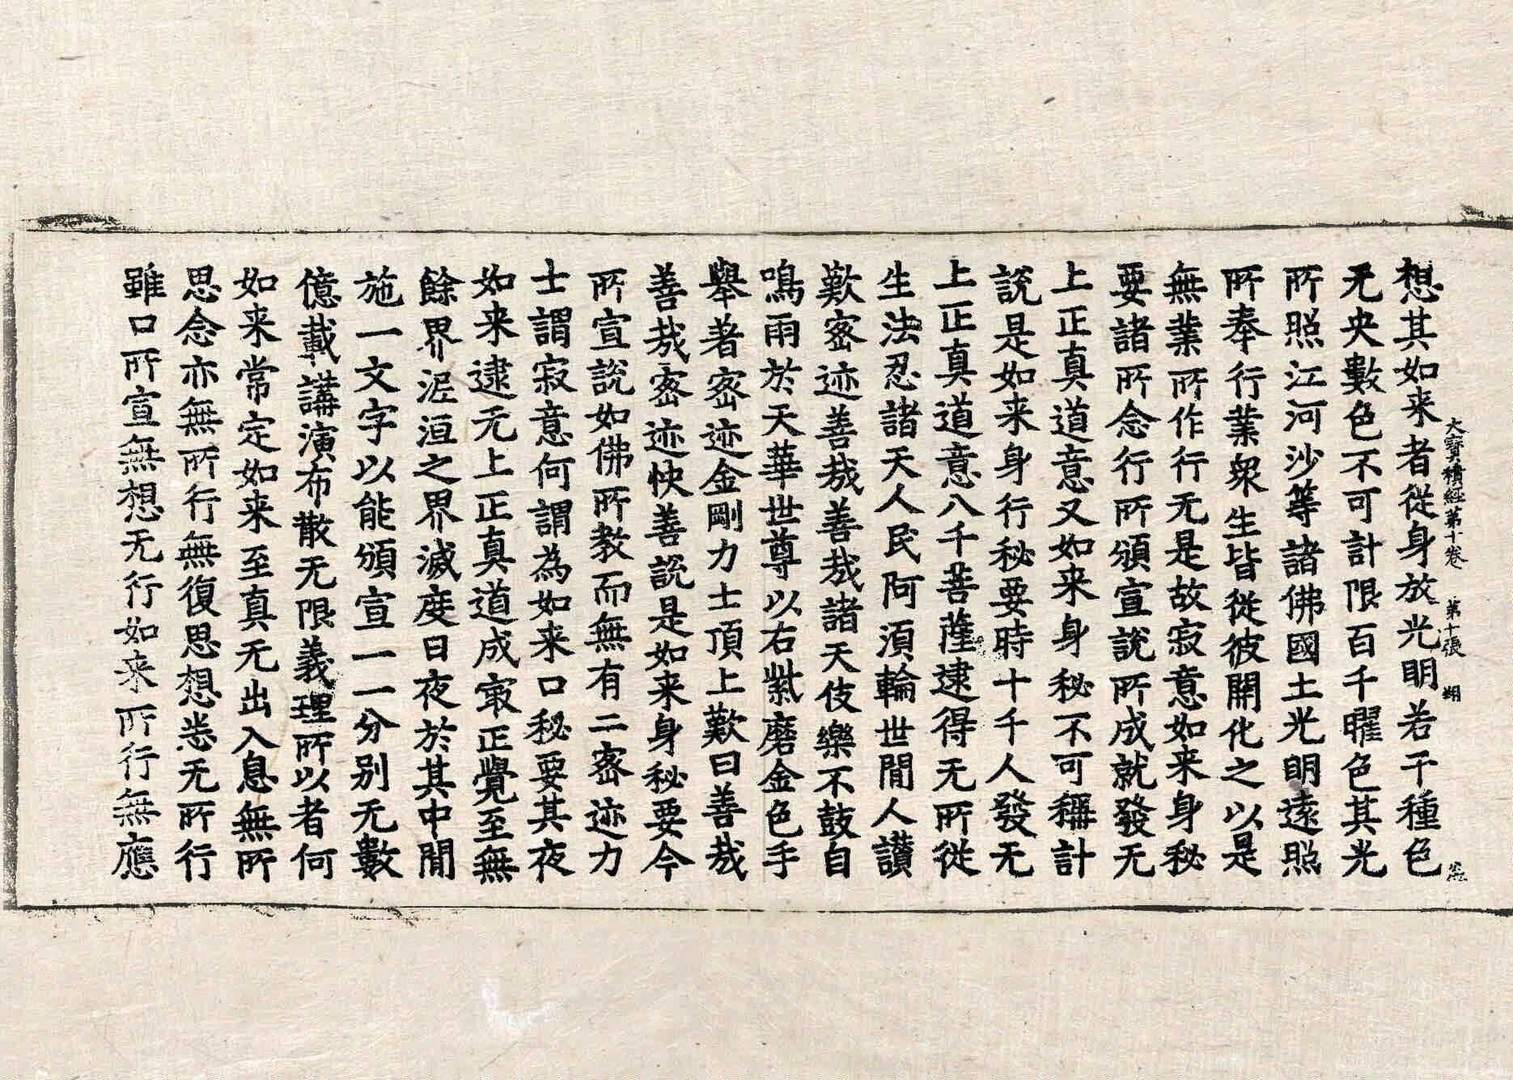 大寶積經第十卷　第十張　翔
想其如来者從身放光明若干種色
无央數色不可計限百千曜色其光
所照江河沙等諸佛國土光明遠照
所奉行業衆生皆從彼開化之以是
無業所作行无是故寂意如来身秘
要諸所念行所頒宣說所成就發无
上正真道意又如来身秘不可稱計
說是如来身行秘要時十千人發无
上正真道意八千菩薩逮得无所從
生法忍諸天人民阿須輪世閒人讃
歎密迹善哉善哉諸天伎樂不鼓自
鳴雨於天華世尊以右紫磨金色手
舉著密迹金剛力士頂上歎曰善哉
善哉密迹快善說是如来身秘要今
所宣說如佛所教而無有二密迹力
士謂寂意何謂為如来口秘要其夜
如来逮无上正真道成㝡正覺至無
餘界泥洹之界滅度日夜於其中閒
施一文字以能頒宣一一分別无數
億載講演布散无限義理所以者何
如来常定如来至真无出入息無所
思念亦無所行無復思想悉无所行
雖口所宣無想无行如来所行無應